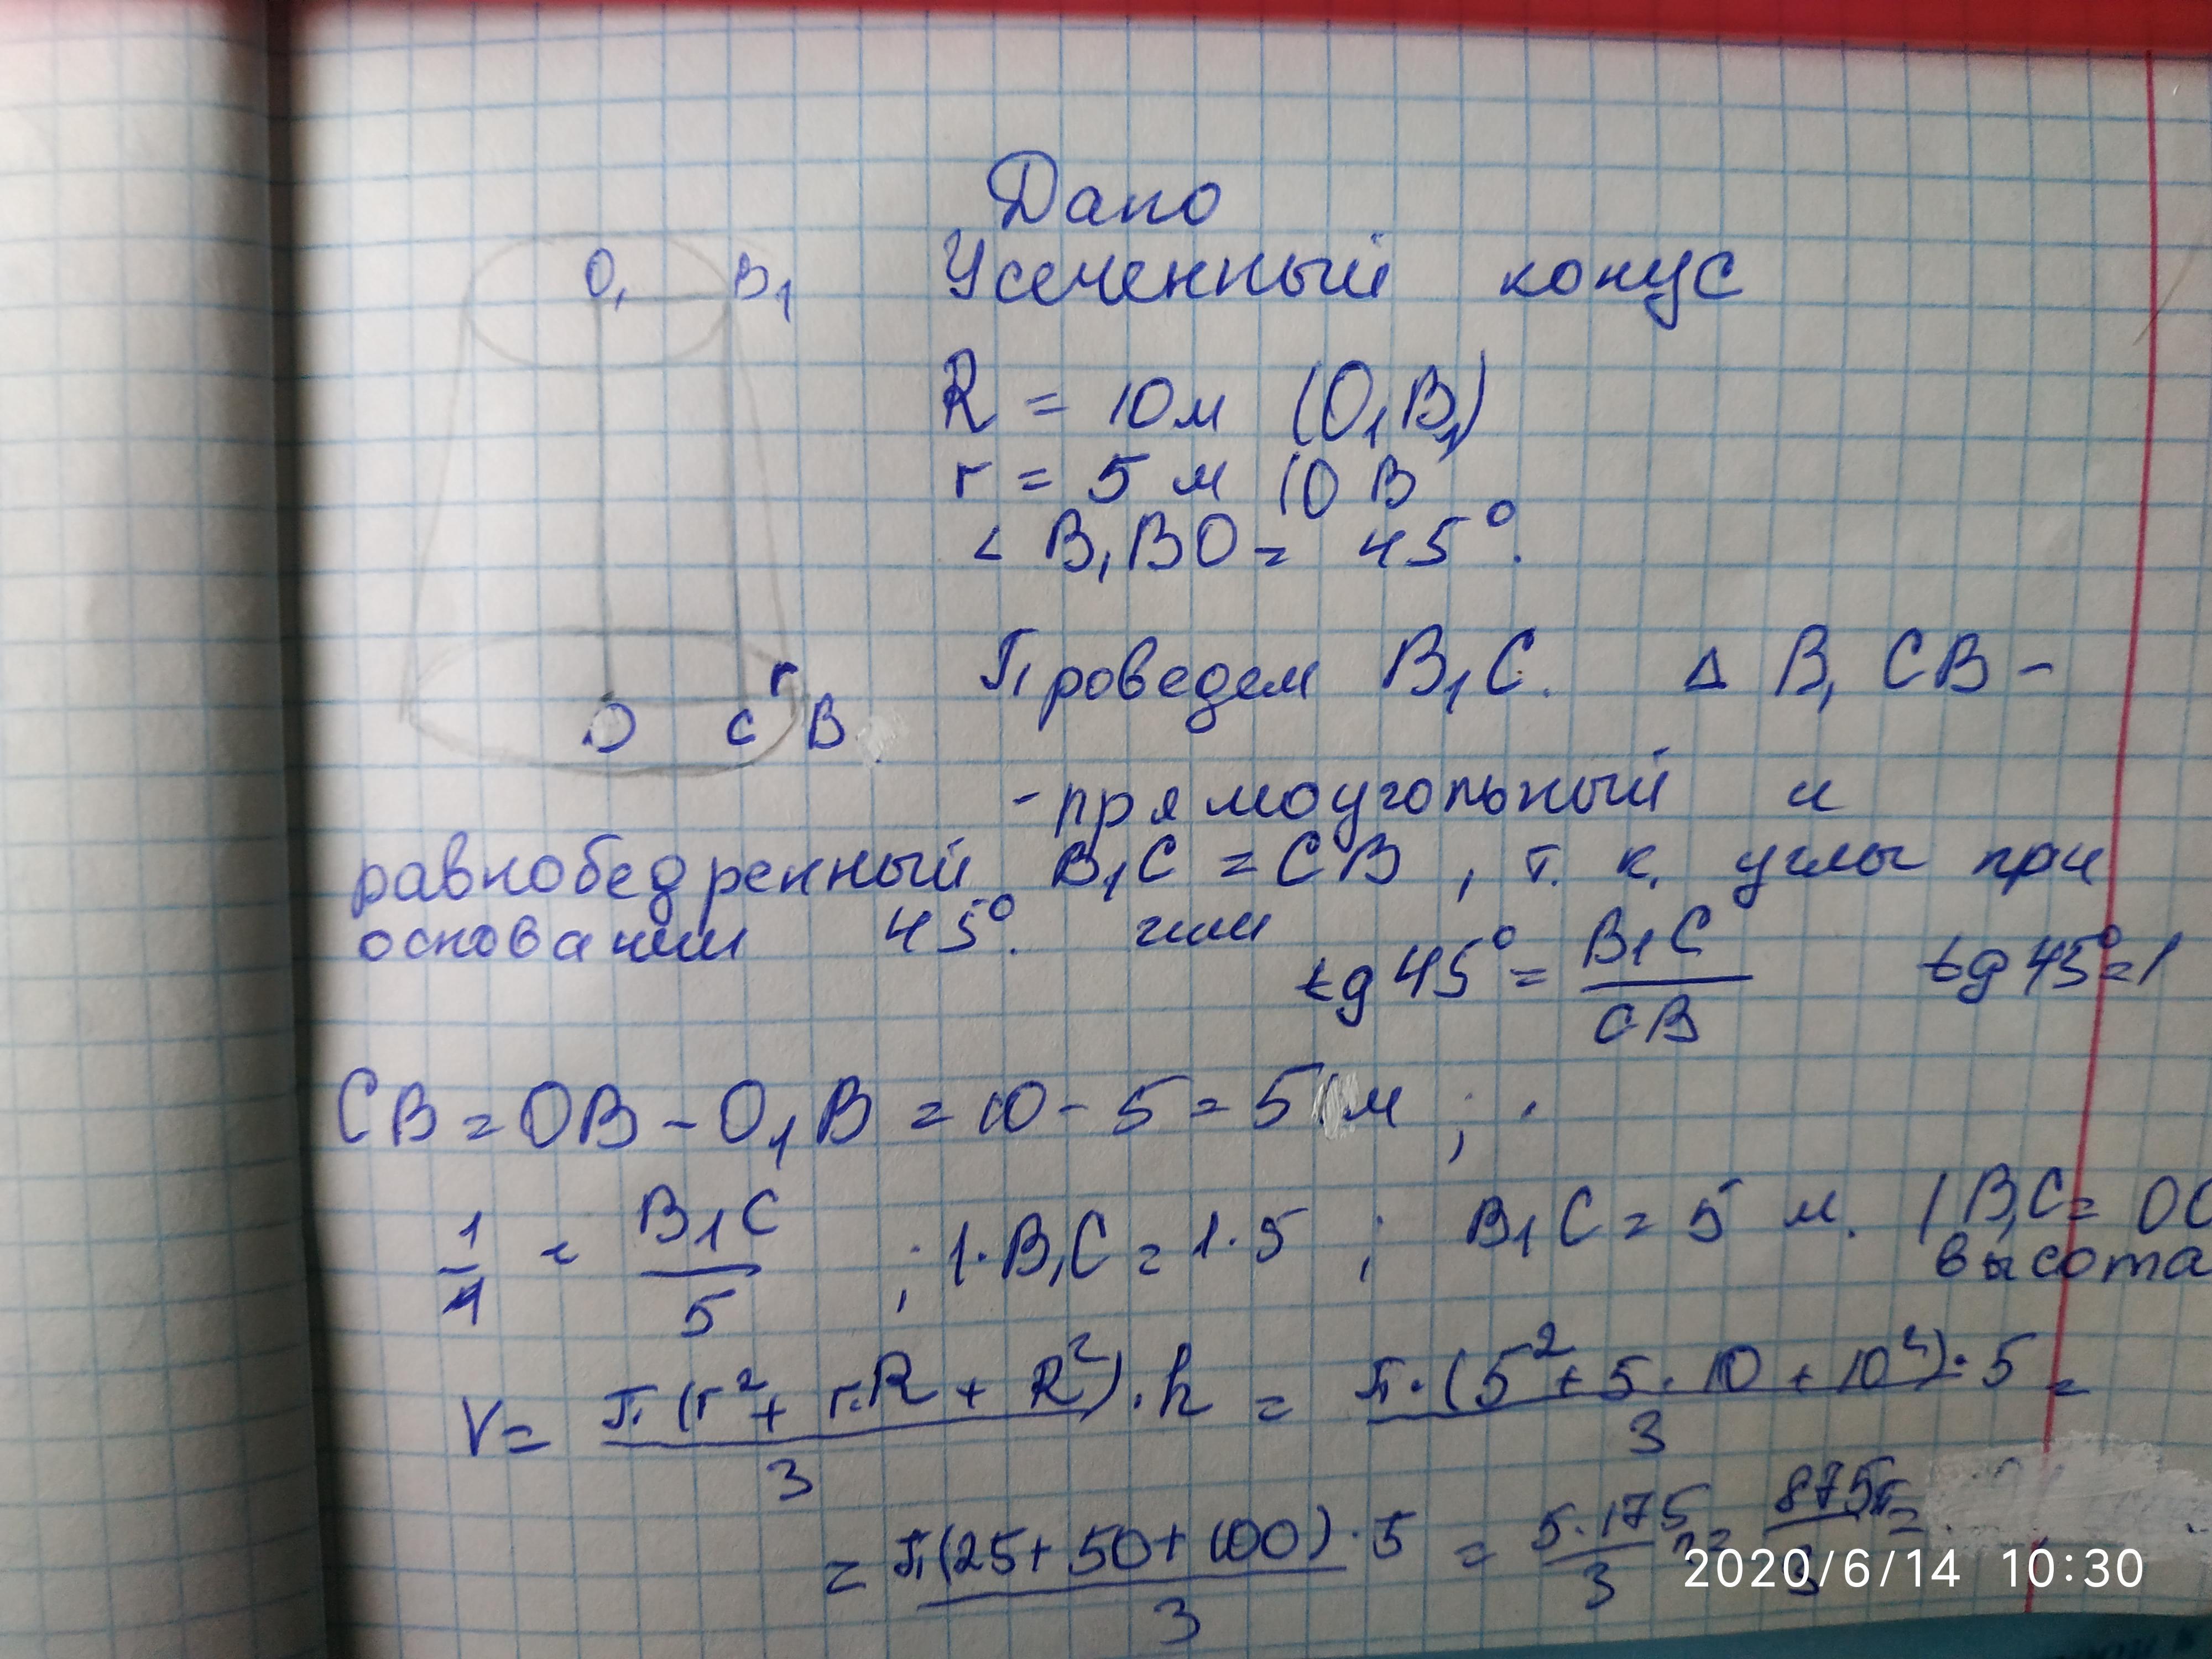 Дано
O₁ B₁ Усеченный конус
R = 10 м (O₁B₁)
r = 5 м (O B
∠ B₁BO = 45°.
Проведем B₁C. Δ B₁CB -
r
O C B
- прямоугольный и
равнобедренный B₁C = CB, т. к. углы при
основании 45°. или
tg 45° = B₁C / CB tg 45° = 1
CB = OB - O₁B = 10 - 5 = 5 м ;
1/1 = B₁C/5 ; 1·B₁C = 1·5 ; B₁C = 5 м. / B₁C = OO
высота
V = π(r² + r·R + R²)·h / 3 = π·(5² + 5·10 + 10²)·5 / 3 =
= π(25 + 50 + 100)·5 / 3 = 5·175/3 π = 875π/3 =
2020/6/14 10:30